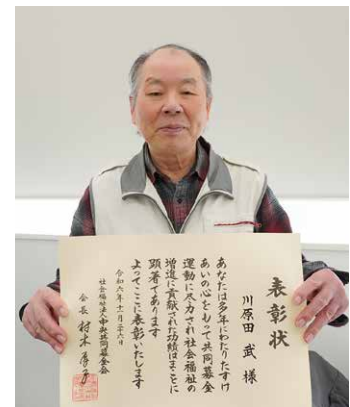 表彰状
川原田 武 様
あなたは多年にわたりたすけ
あいの心をもって共同募金
運動に尽力され社会福祉の
増進に貢献された功績はまことに
顕著であります
よってここに表彰いたします
令和六年十一月二十六日
社会福祉法人中央共同募金会
会長 村木厚子